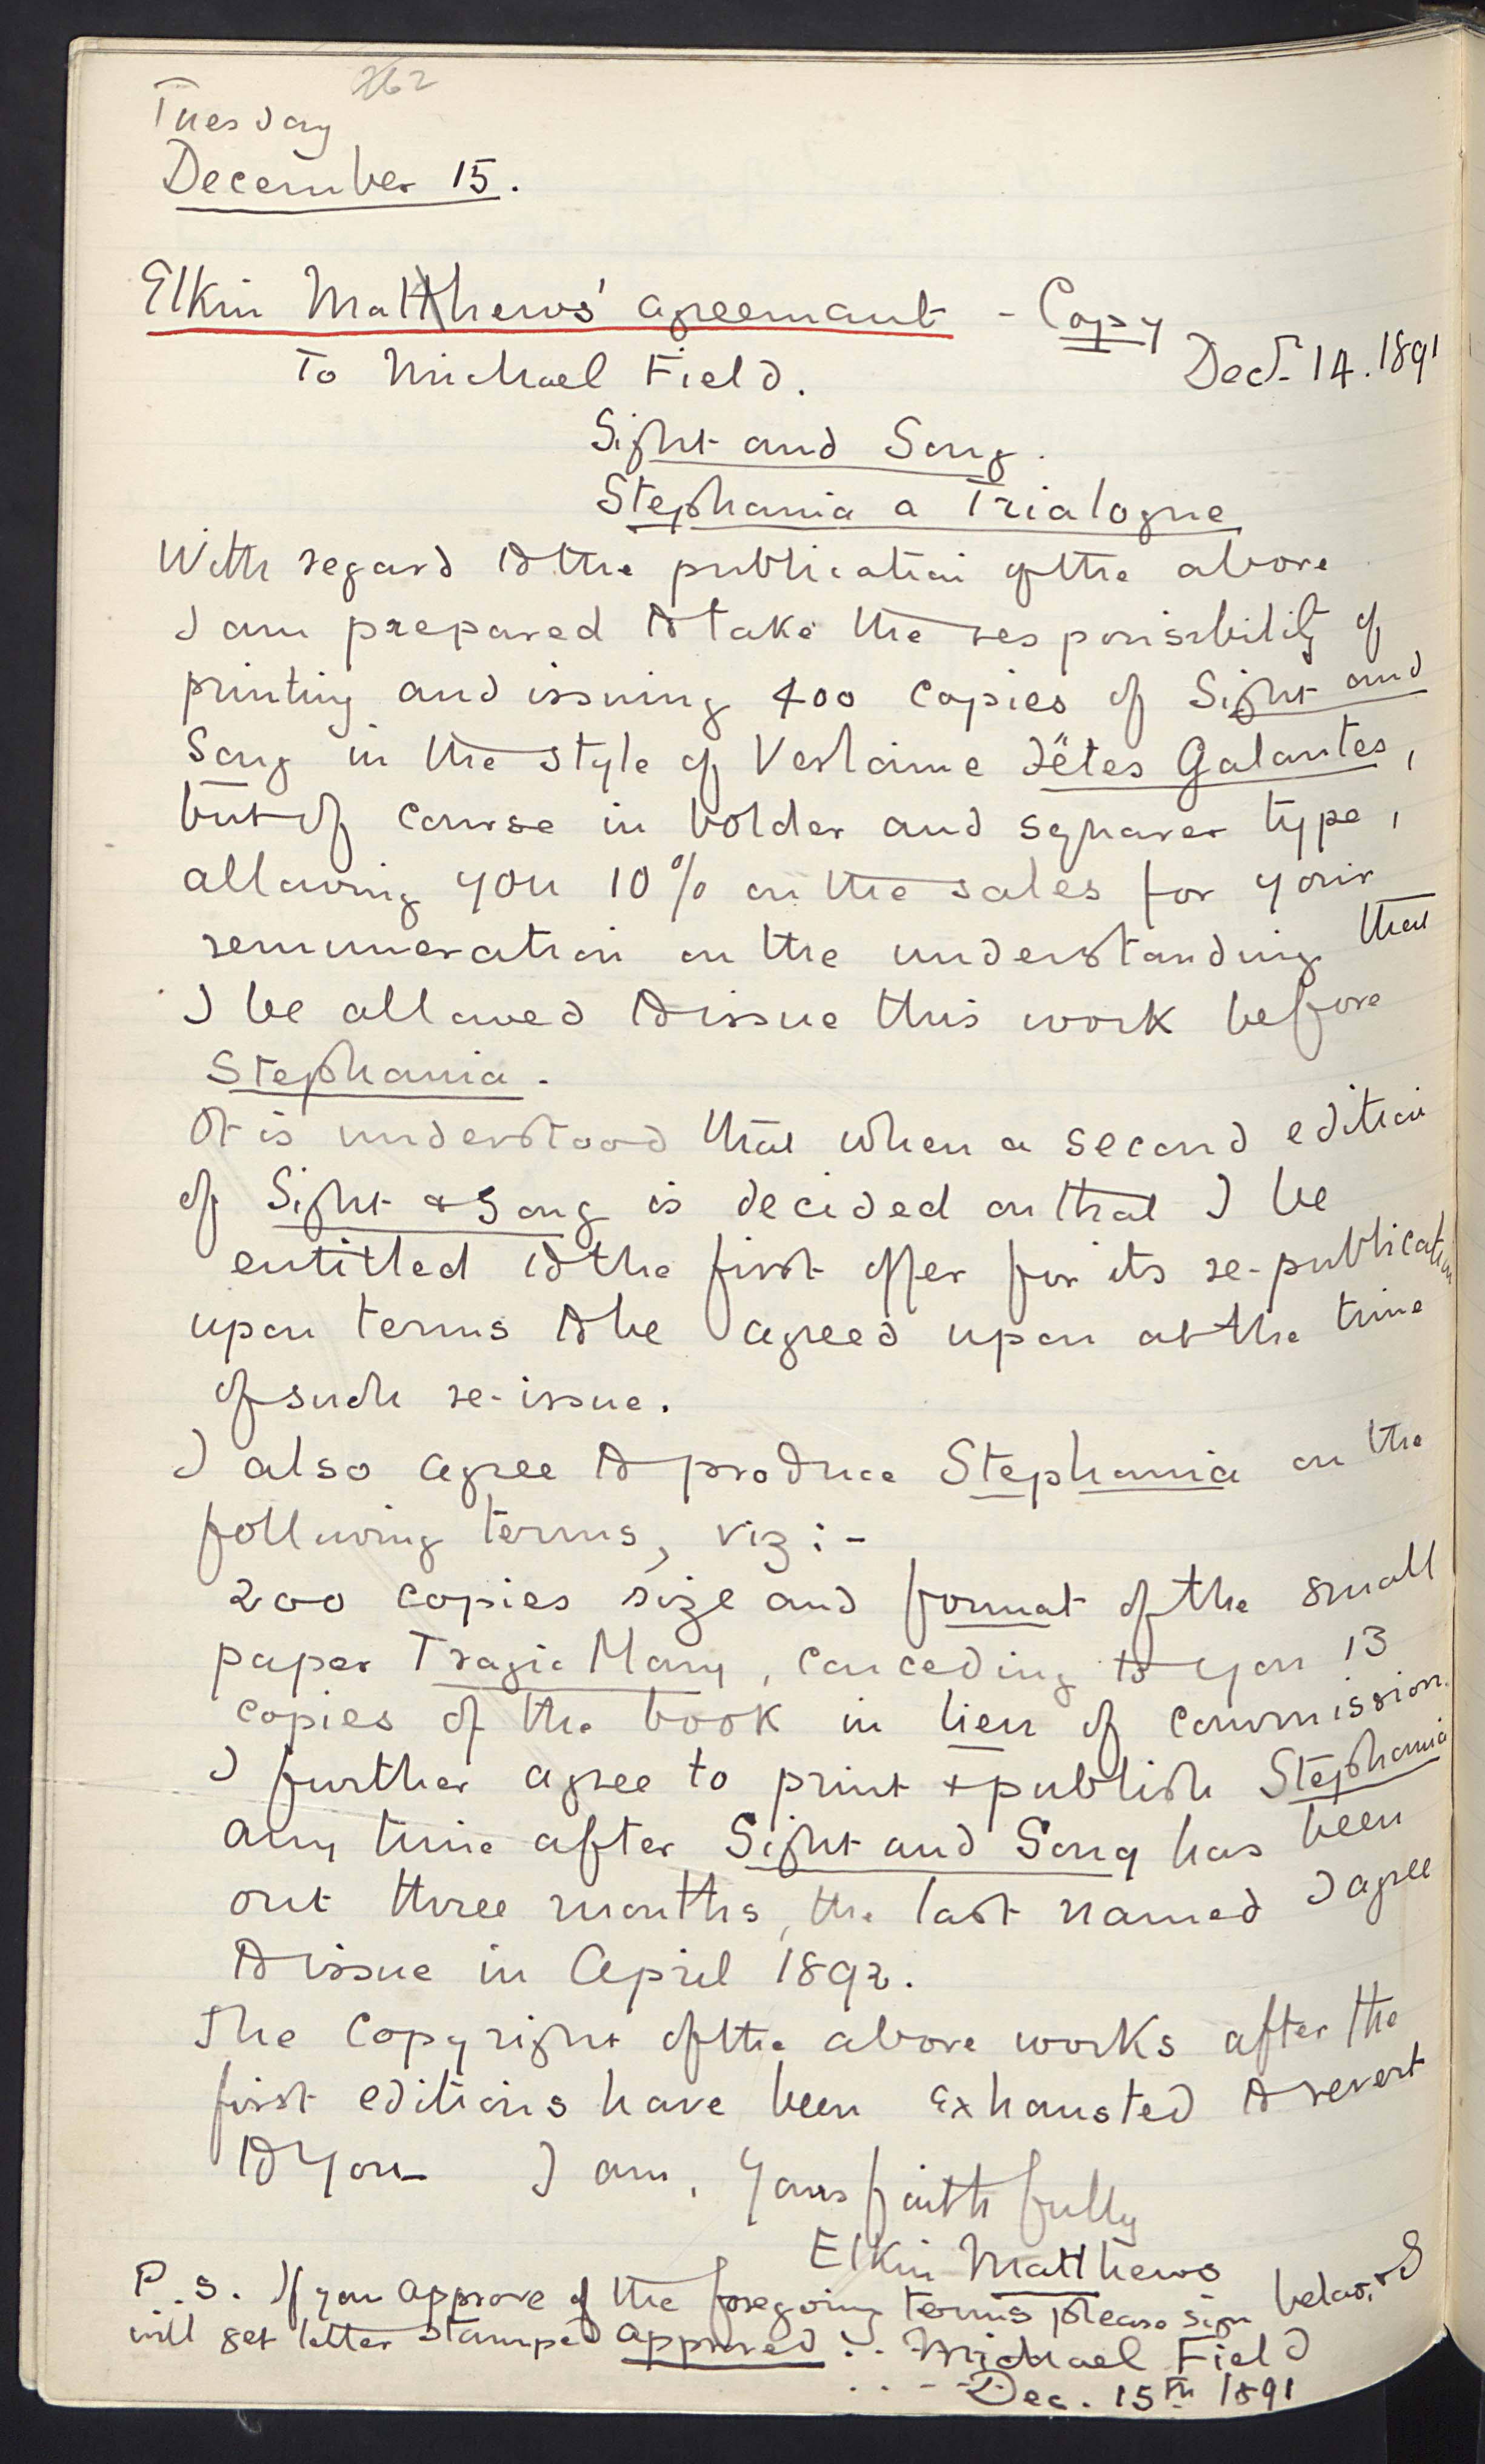 262
Tuesday
December 15.
Elkin Matthews' agreemant - Copy
To Michael Field. Dec. 14. 1891
Sight and Song.
Stephania a Trialogue
With regard to the publication of the above
I am prepared to take the responsibility of
printing and issuing 400 copies of Sight and
Song in the style of Verlaine Fêtes Galantes,
but of course in bolder and squarer type,
allowing you 10% on the sales for your
remuneration on the understanding that
I be allowed to issue this work before
Stephania.
It is understood that when a second edition
of Sight & Song is decided on that I be
entitled to the first offer for its re-publication
upon terms to be agreed upon at the time
of such re-issue.
I also agree to produce Stephania on the
following terms, viz:-
200 copies size and format of the small
paper Tragic Mary, conceding to you 13
copies of the book in lieu of commission.
I further agree to print & publish Stephania
any time after Sight and Song has been
out three months, the last named I agree
to issue in April 1892.
The Copyright of the above works after the
first editions have been exhausted to revert
to you— I am, Yours faithfully
Elkin Matthews
P.S. If you approve of the foregoing terms please sign below, & I
will get letter stamped approved... Michael Field
... Dec. 15th 1891